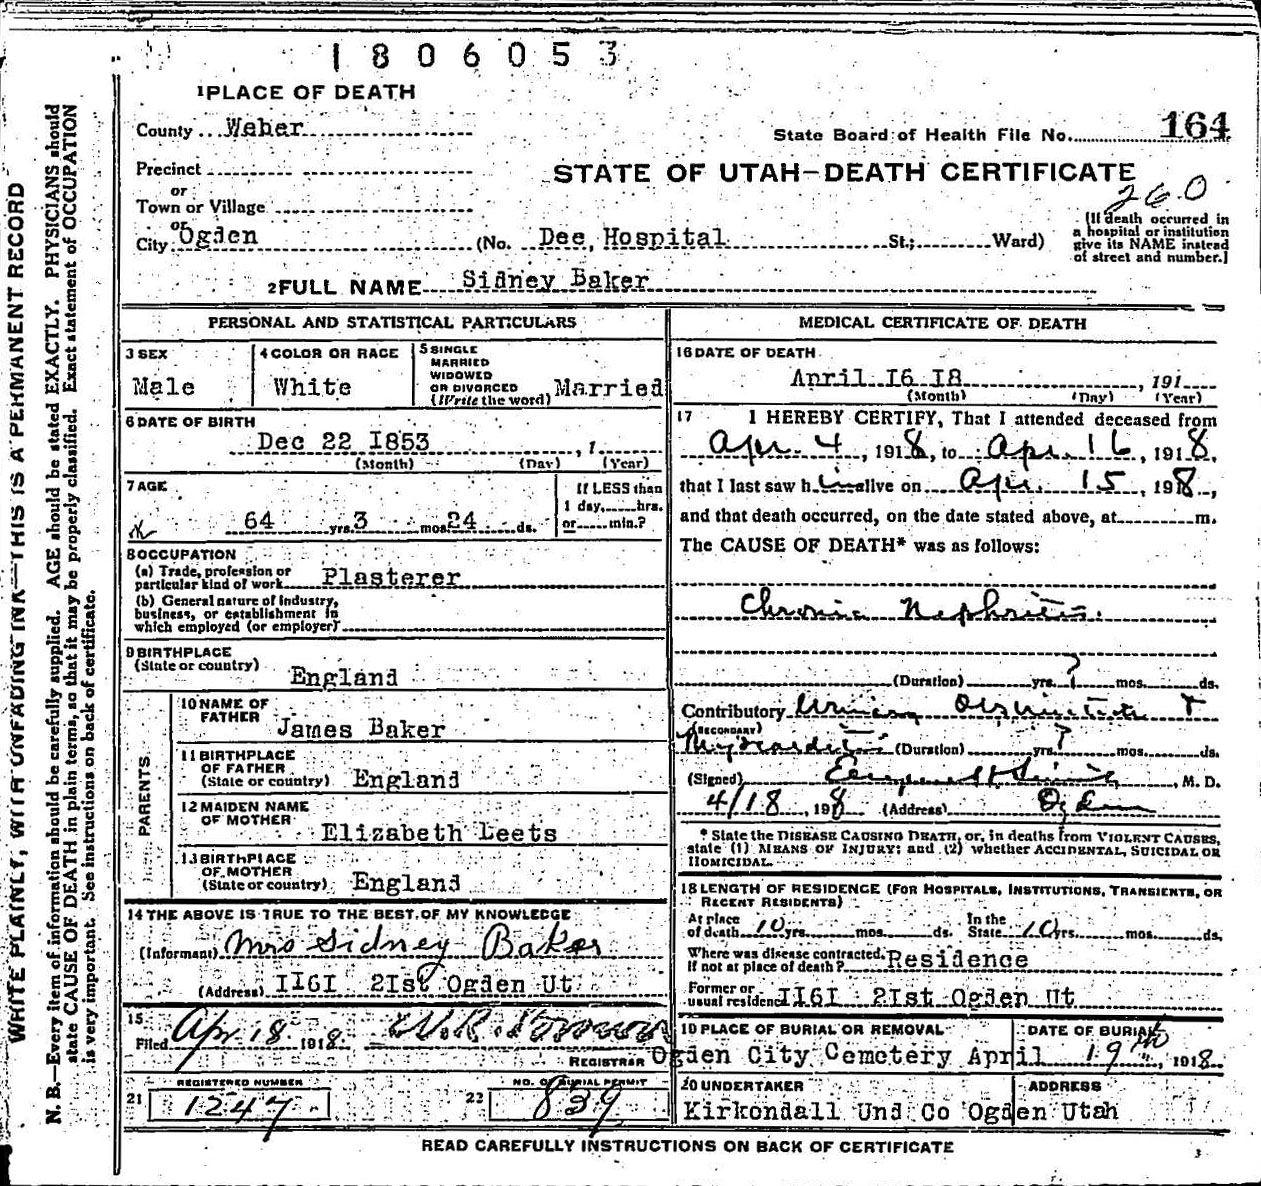 1806053
1 PLACE OF DEATH
County Weber
State Board of Health File No. 164
Precinct
STATE OF UTAH—DEATH CERTIFICATE
or
260
Town or Village
or
City Ogden (No. Dee, Hospital St.; Ward)
(If death occurred in
a hospital or institution
give its NAME instead
of street and number.]
2 FULL NAME Sidney Baker
PERSONAL AND STATISTICAL PARTICULARS
3 SEX
Male
4 COLOR OR RACE
White
5 SINGLE
MARRIED
WIDOWED
OR DIVORCED
(Write the word) Married
6 DATE OF BIRTH
Dec 22 I853 , 1
(Month) (Day) (Year)
7 AGE
64 yrs. 3 mos. 24 ds.
If LESS than
1 day, hrs.
or min.?
8 OCCUPATION
(a) Trade, profession or
particular kind of work Plasterer
(b) General nature of industry,
business, or establishment in
which employed (or employer)
9 BIRTHPLACE
(State or country)
England
PARENTS
10 NAME OF
FATHER
James Baker
11 BIRTHPLACE
OF FATHER
(State or country) England
12 MAIDEN NAME
OF MOTHER
Elizabeth Leets
13 BIRTHPLACE
OF MOTHER
(State or country) England
14 THE ABOVE IS TRUE TO THE BEST OF MY KNOWLEDGE
(Informant) Mrs Sidney Baker
(Address) II6I 2Ist Ogden Ut
15
Filed Apr 18 1918.
REGISTRAR
21 REGISTERED NUMBER
1247
22 NO. OF BURIAL PERMIT
839
MEDICAL CERTIFICATE OF DEATH
16 DATE OF DEATH
April I6 I8 , 191
(Month) (Day) (Year)
17 I HEREBY CERTIFY, That I attended deceased from
Apr. 4, 1918, to Apr. 16, 1918,
that I last saw him alive on Apr. 15, 1918,
and that death occurred, on the date stated above, at m.
The CAUSE OF DEATH* was as follows:
Chronic Nephritis.
(Duration) yrs. ? mos. ds.
Contributory Urinary Obstruction +
(SECONDARY)
Myocarditis (Duration) yrs. ? mos. ds.
(Signed) M. D.
4/18, 1918 (Address) Ogden
* State the DISEASE CAUSING DEATH, or, in deaths from VIOLENT CAUSES,
state (1) MEANS OF INJURY; and (2) whether ACCIDENTAL, SUICIDAL OR
HOMICIDAL.
18 LENGTH OF RESIDENCE (FOR HOSPITALS, INSTITUTIONS, TRANSIENTS, OR
RECENT RESIDENTS)
At place
of death 10 yrs. mos. ds.
In the
State 10 yrs. mos. ds.
Where was disease contracted,
if not at place of death? Residence
Former or
usual residence II6I 2Ist Ogden Ut
19 PLACE OF BURIAL OR REMOVAL
DATE OF BURIAL
Ogden City Cemetery April 19th, 1918
20 UNDERTAKER
ADDRESS
Kirkondall Und Co Ogden Utah
READ CAREFULLY INSTRUCTIONS ON BACK OF CERTIFICATE
3
WRITE PLAINLY, WITH UNFADING INK—THIS IS A PERMANENT RECORD
N. B.—Every item of information should be carefully supplied. AGE should be stated EXACTLY. PHYSICIANS should
state CAUSE OF DEATH in plain terms, so that it may be properly classified. Exact statement of OCCUPATION
is very important. See instructions on back of certificate.